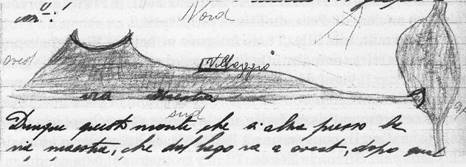 Nord
ovest
Villaggio
via Maestra
sud
Dunque questo monte che si alza presso la
via maestra, che dal lago va a ovest, dopo